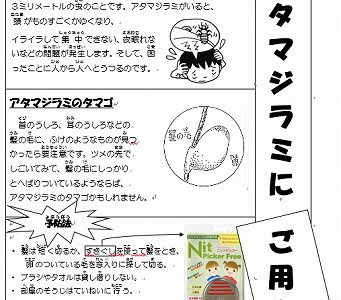 ３ミリメートルの虫のことです。アタマジラミがいると、
頭がものすごくかゆくなり、
イライラして集中できない、夜眠れな
いなどの問題が発生します。そして、困
ったことに人から人へとうつるのです。
アタマジラミのタマゴ
首のうしろ、耳のうしろなどの
髪の毛に、ふけのようなものが見つ
かったら要注意です。ツメの先で
しごいてみて、髪の毛にしっかり
とへばりついているようならば、
アタマジラミのタマゴかもしれません。
髪の毛
予防法
・ 髪は短く切るか、すきぐしを使って髪をとき、
卵のついている毛を念入りに探して切る。
・ ブラシやタオルは貸し借りしない。
・ 部屋のそうじはていねいに行う。
Nit
Picker Free
タマジラミに
ご用